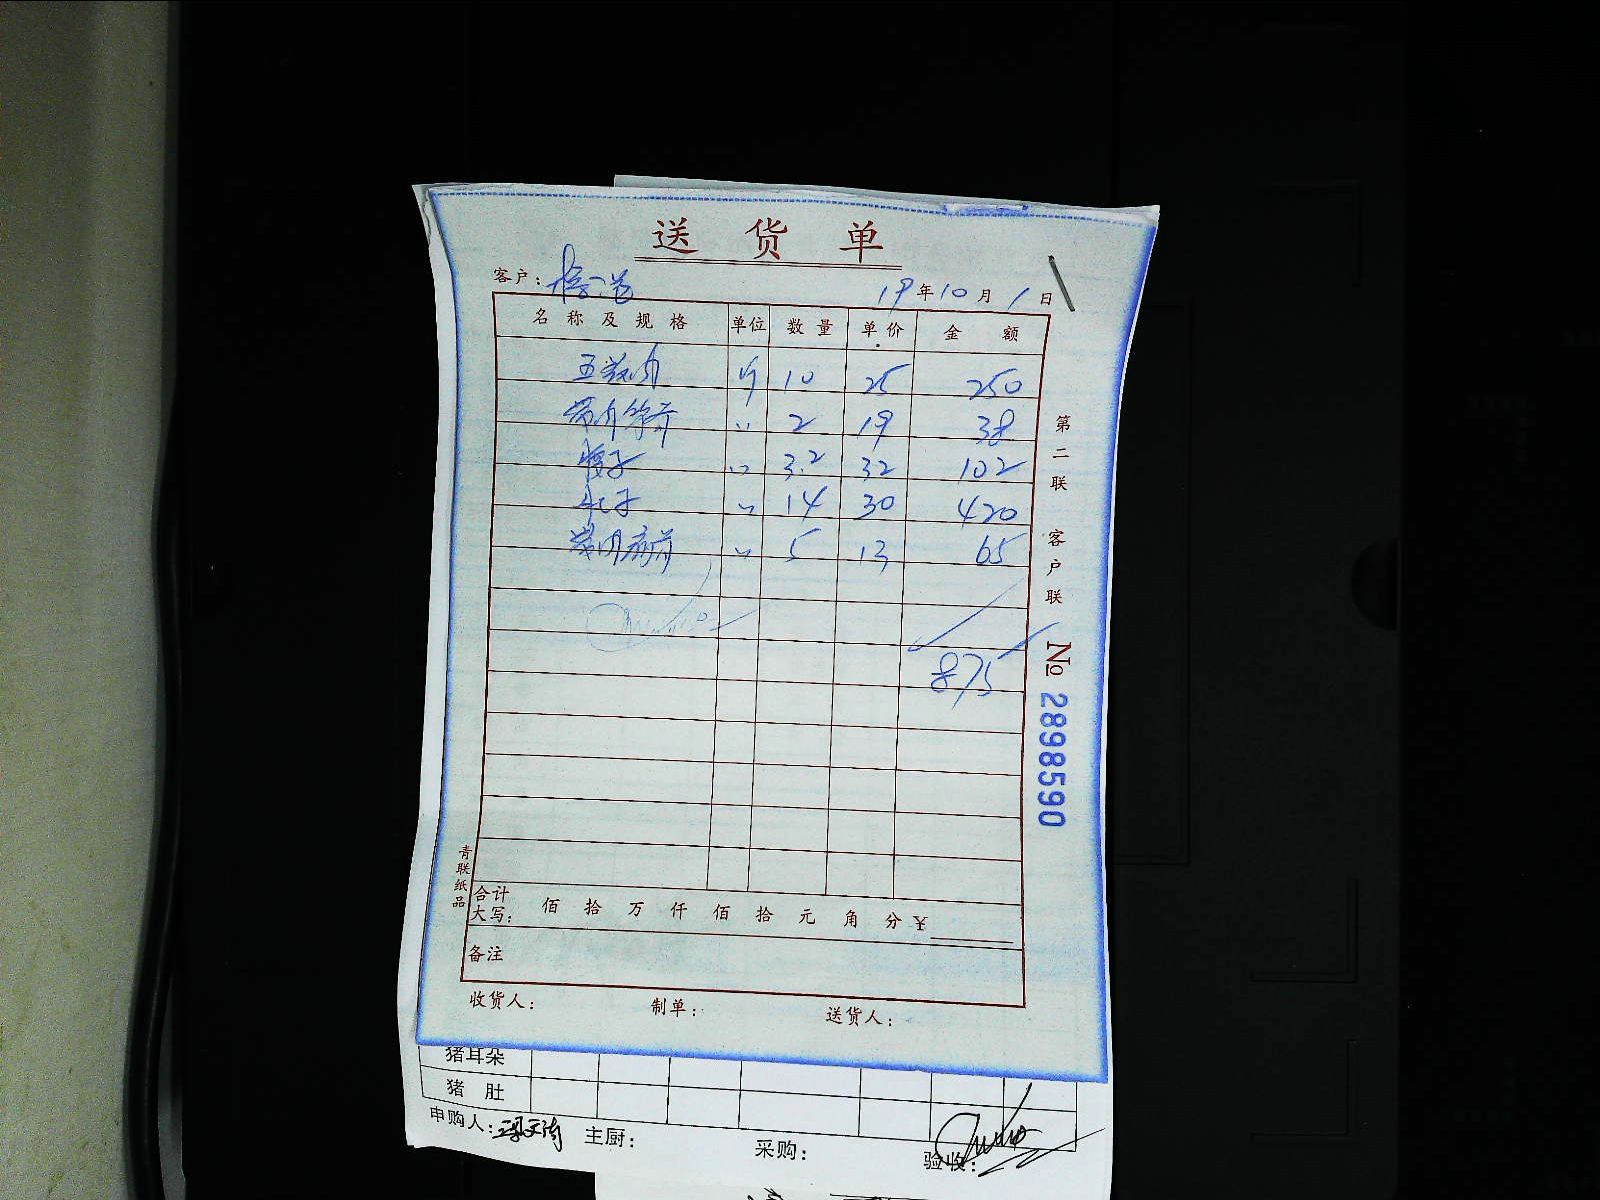 送货单
客户：
19年10月1日
名称及规格 单位 数量 单价 金额
五花肉 斤 10 25 250
〃 2 19 38
腰子 〃 3.2 32 102
〃 14 30 420
〃 5 13 65
875
第二联 客户联 № 2898590
青联纸品
合计大写： 佰 拾 万 仟 佰 拾 元 角 分 ¥
备注
收货人： 制单： 送货人：
猪耳朵
猪肚
申购人： 主厨： 采购： 验收：